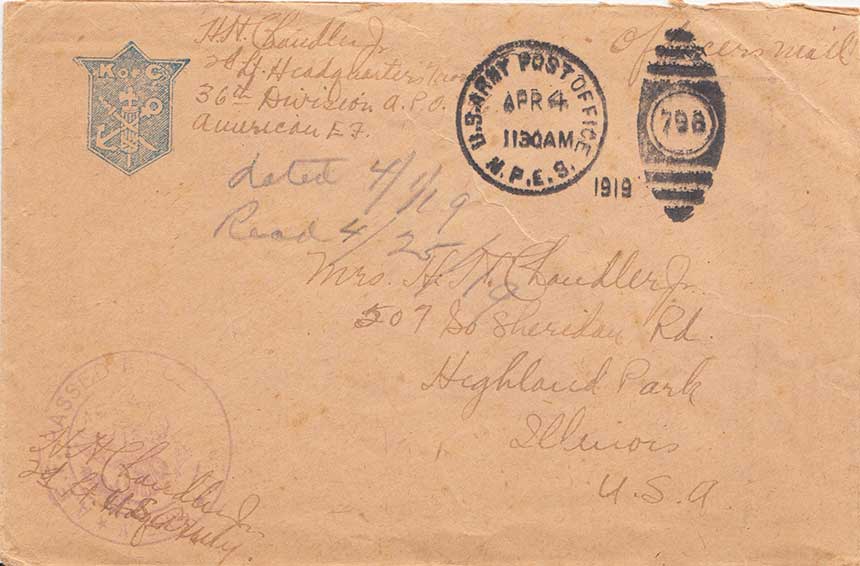 H. H. Chandler Jr.
2d Lt. Headquarters Troop
36th Division A.P.O.
American E.F.
Officers mail
K of C
U.S. ARMY POST OFFICE
APR 4
1130AM
M.P.E.S.
1919
798
dated 4/1/19
Read 4/25/19
Mrs. H. H. Chandler Jr.
507 So Sheridan Rd.
Highland Park
Illinois
U.S.A
PASSED
H. H. Chandler Jr.
2d Lt. U.S. Army.